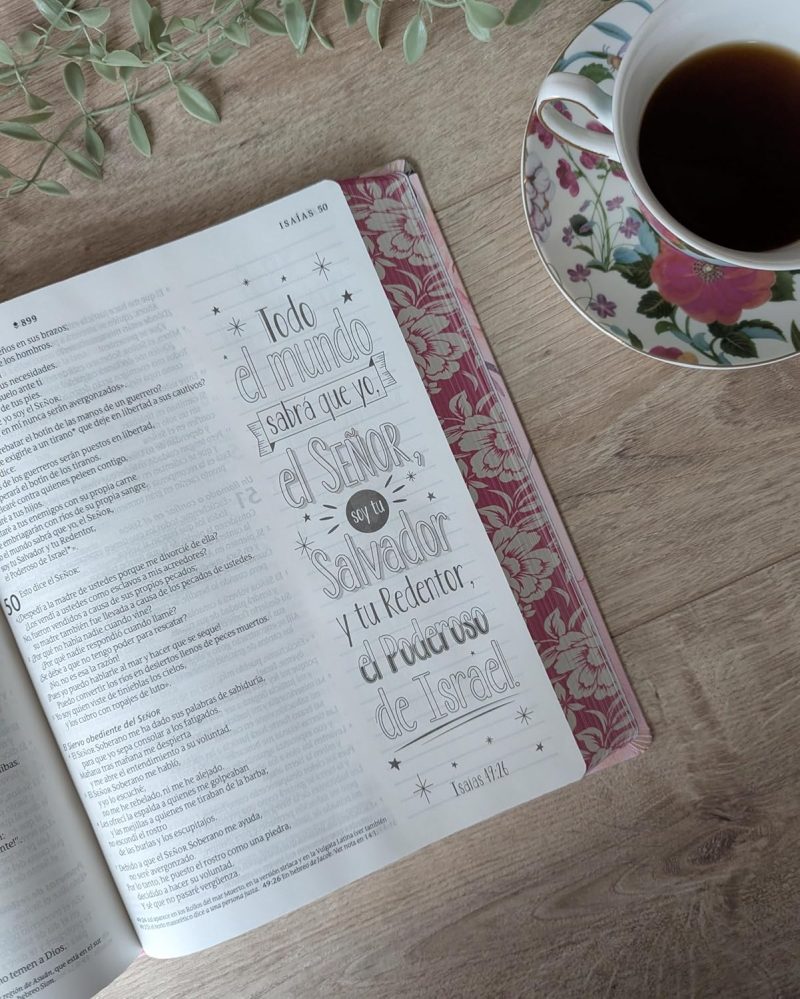 899
ISAÍAS 50
Todo
el mundo
sabrá que yo,
el SEÑOR,
soy tu
Salvador
y tu Redentor,
el Poderoso
de Israel.
Isaías 49:26
eños en sus brazos;
los hombros.
us necesidades.
suelo ante ti
de tus pies.
e yo soy el SEÑOR.
en mí nunca serán avergonzados».
rebatar el botín de las manos de un guerrero?
e exigirle a un tirano* que deje en libertad a sus cautivos?
dice:
s de los guerreros serán puestos en libertad,
perará el botín de los tiranos.
learé contra quienes peleen contigo,
aré a tus hijos.
aré a tus enemigos con su propia carne
embriagarán con ríos de su propia sangre.
o el mundo sabrá que yo, el SEÑOR,
soy tu Salvador y tu Redentor,
el Poderoso de Israel*».
50 Esto dice el SEÑOR:
«¿Despedí a la madre de ustedes porque me divorcié de ella?
¿Los vendí a ustedes como esclavos a mis acreedores?
No, fueron vendidos a causa de sus propios pecados;
su madre también fue llevada a causa de los pecados de ustedes.
¿Por qué no había nadie cuando vine?
¿Por qué nadie respondió cuando llamé?
¿Se debe a que no tengo poder para rescatar?
¡No, no es esa la razón!
¡Pues yo puedo hablarle al mar y hacer que se seque!
Puedo convertir los ríos en desiertos llenos de peces muertos.
Yo soy quien viste de tinieblas los cielos,
y los cubro con ropajes de luto».
El siervo obediente del SEÑOR
El SEÑOR Soberano me ha dado sus palabras de sabiduría,
para que yo sepa consolar a los fatigados.
Mañana tras mañana me despierta
y me abre el entendimiento a su voluntad.
El SEÑOR Soberano me habló,
y yo lo escuché;
no me he rebelado, ni me he alejado.
Les ofrecí la espalda a quienes me golpeaban
y las mejillas a quienes me tiraban de la barba;
no escondí el rostro
de las burlas y los escupitajos.
Debido a que el SEÑOR Soberano me ayuda,
no seré avergonzado.
Por lo tanto, he puesto el rostro como una piedra,
decidido a hacer su voluntad.
Y sé que no pasaré vergüenza.
aparece en los Rollos del mar Muerto, en la versión siríaca y en la Vulgata Latina (ver también
el texto masorético dice a una persona justa. 49:26 En hebreo de Jacob. Ver nota en 14:1.
no temen a Dios.
región de Asuán, que está en el sur
hebreo Sion.